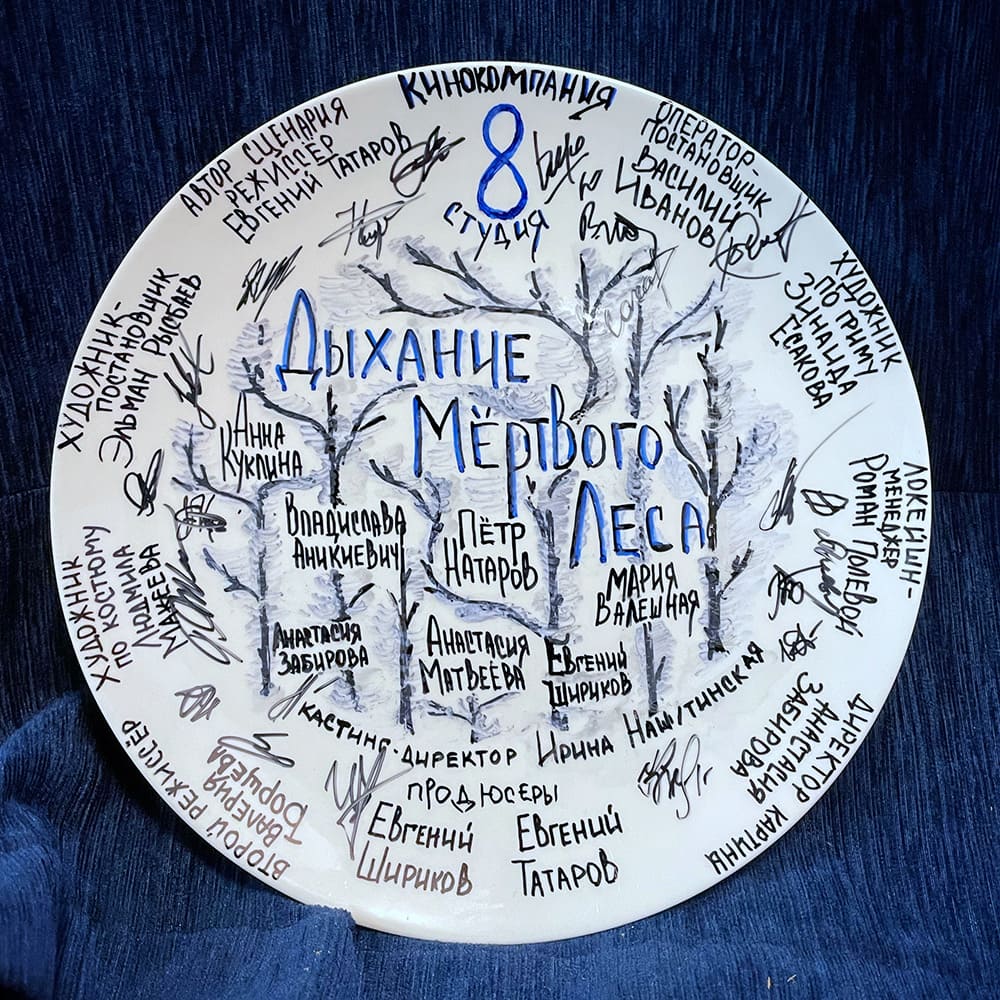 КИНОКОМПАНИЯ
8
СТУДИЯ
АВТОР СЦЕНАРИЯ
РЕЖИССЁР
ЕВГЕНИЙ ТАТАРОВ
ОПЕРАТОР-
ПОСТАНОВЩИК
ВАСИЛИЙ
ИВАНОВ
ХУДОЖНИК
ПО ГРИМУ
ЗИНАИДА
ЕСАКОВА
ЛОКЕЙШН-
МЕНЕДЖЕР
РОМАН ПОЛЕВОЙ
ДИРЕКТОР КАРТИНЫ
АНАСТАСИЯ
ЗАБИРОВА
ХУДОЖНИК-
ПОСТАНОВЩИК
ЭЛЬМАН РЫСБАЕВ
ХУДОЖНИК
ПО КОСТЮМУ
ЛЮДМИЛА
МАКЕЕВА
ВТОРОЙ РЕЖИССЁР
ВАЛЕРИЯ
БОРЦЕВА
ДЫХАНИЕ
МЁРТВОГО
ЛЕСА
АННА
КУКЛИНА
ВЛАДИСЛАВА
АНИКИЕВИЧ
ПЁТР
НАТАРОВ
МАРИЯ
ВАЛЕШНАЯ
АНАСТАСИЯ
ЗАБИРОВА
АНАСТАСИЯ
МАТВЕЕВА
ЕВГЕНИЙ
ШИРИКОВ
КАСТИНГ-ДИРЕКТОР ИРИНА НАШТИНСКАЯ
ПРОДЮСЕРЫ
ЕВГЕНИЙ
ШИРИКОВ
ЕВГЕНИЙ
ТАТАРОВ